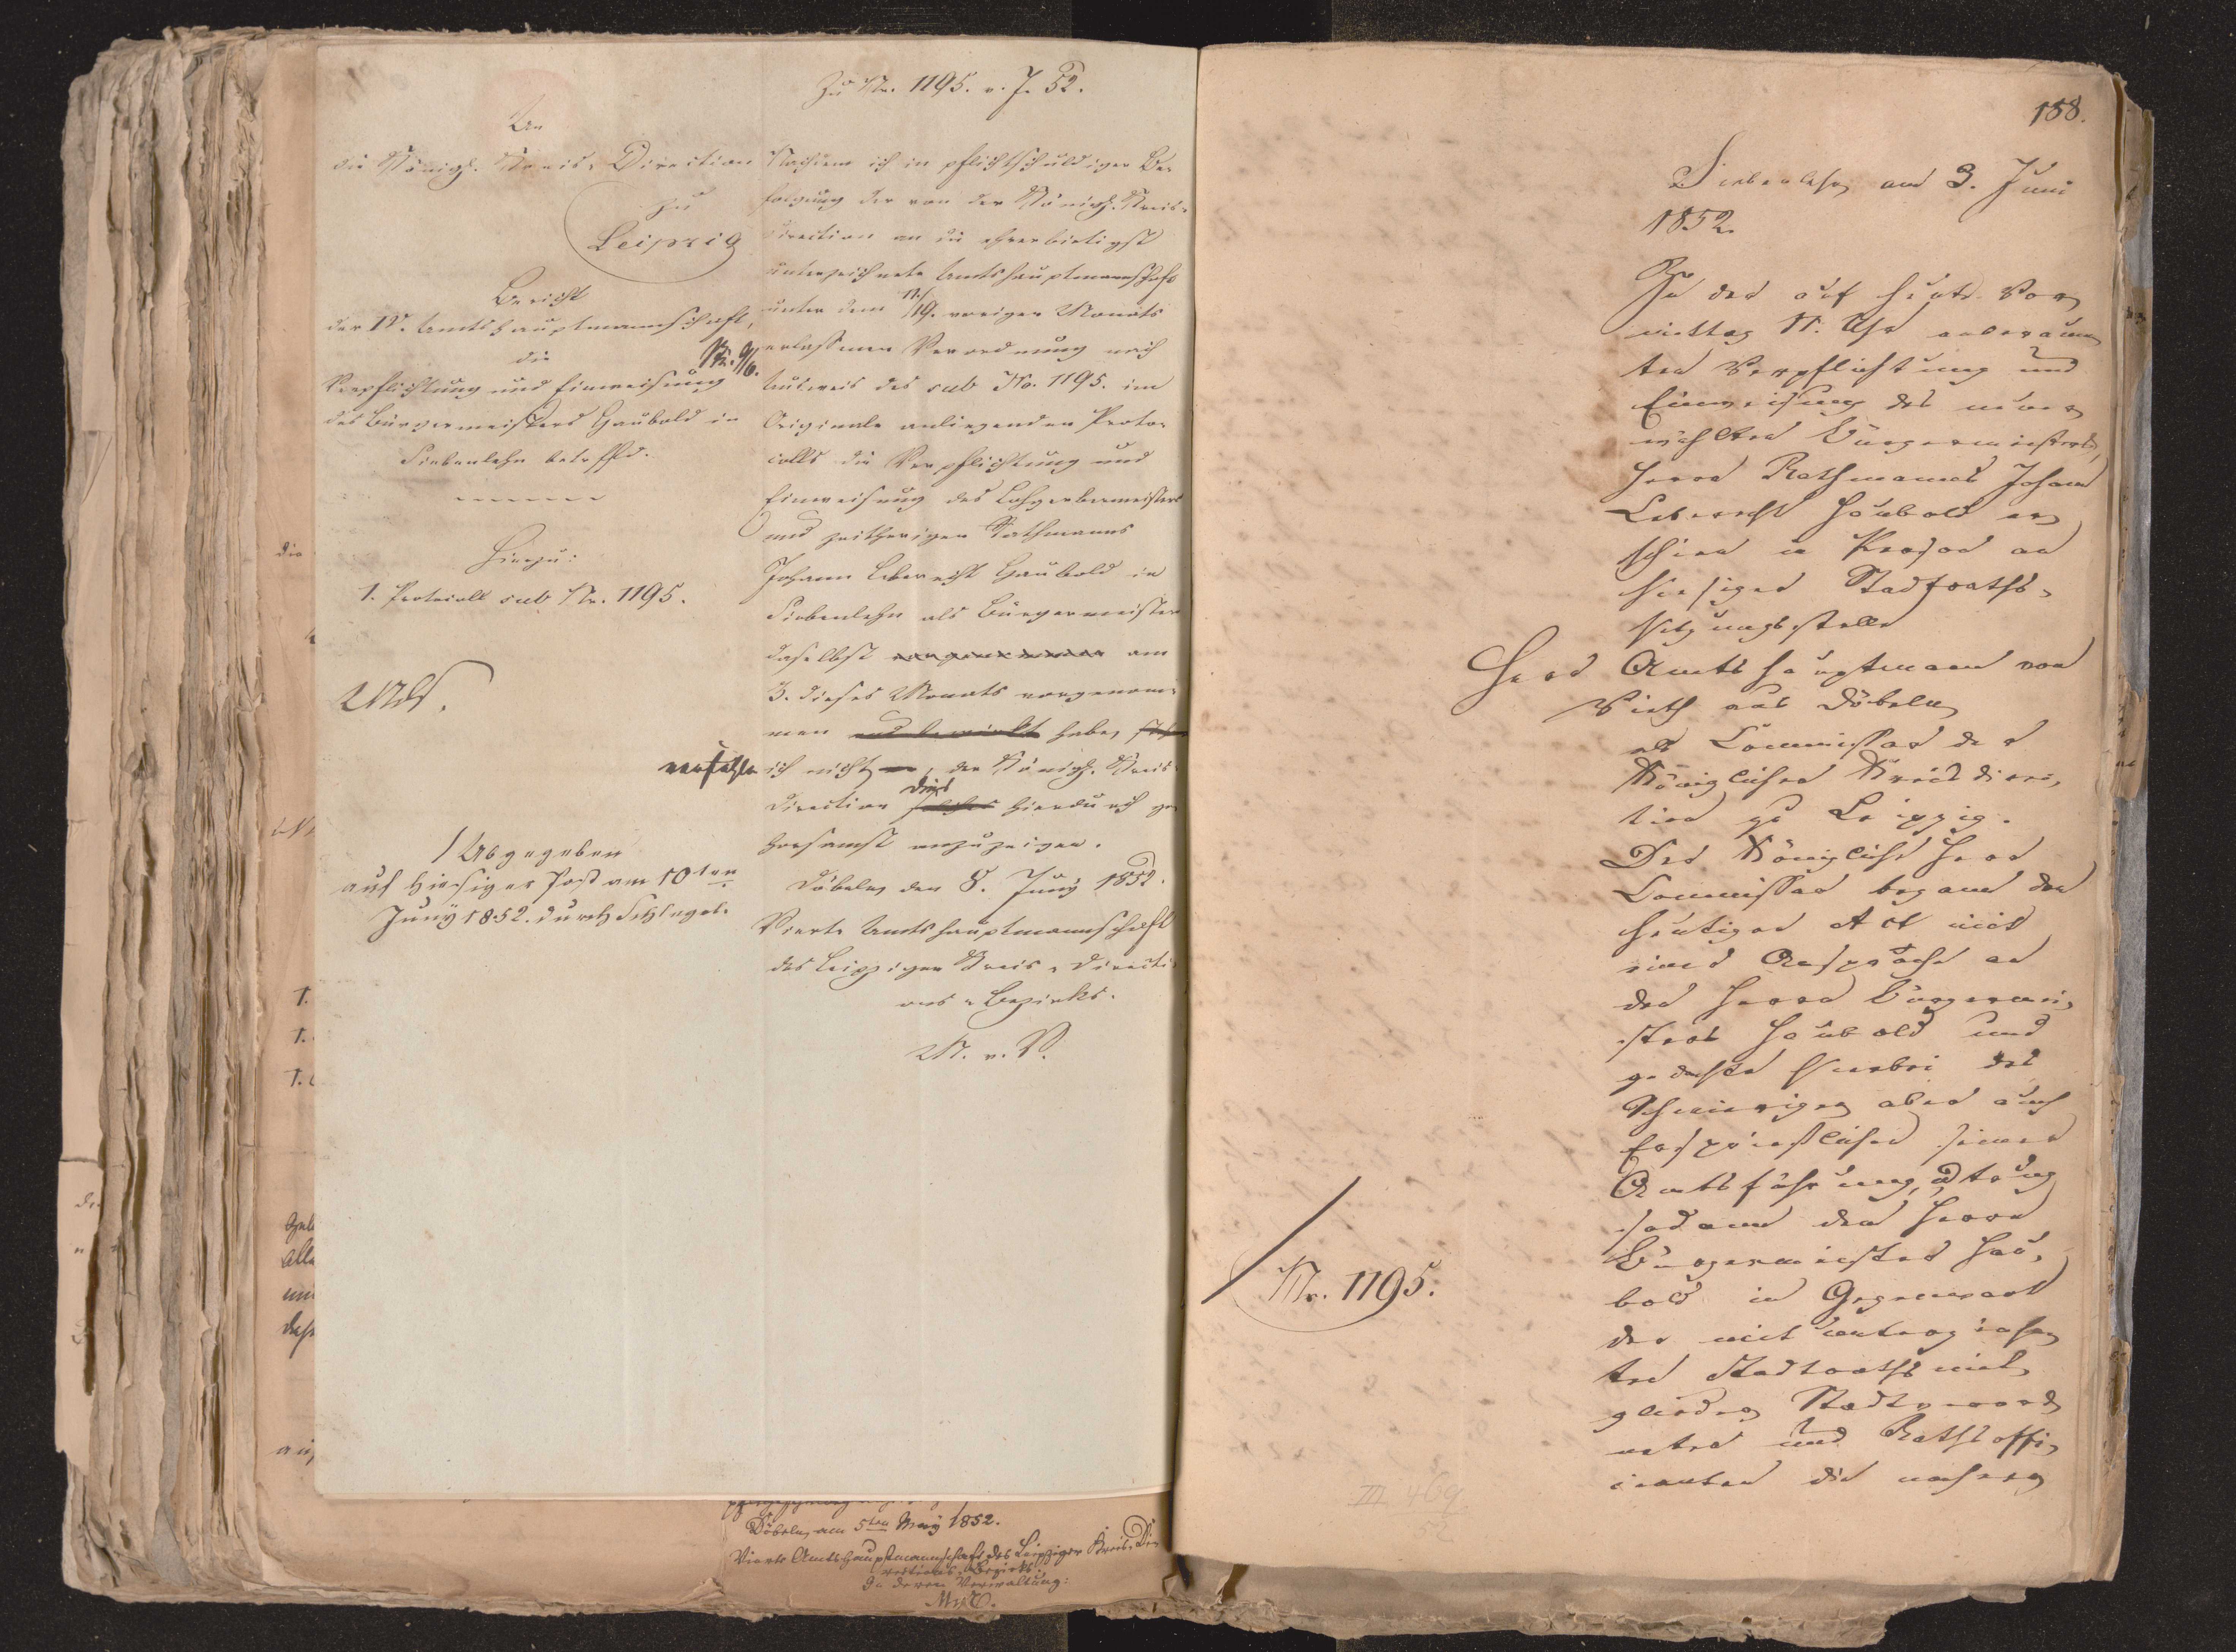 Zu Nr. 1195. v. J. 52.
An
die Königl. Kreis-Direction
zu
Leipzig
Bericht
der IV. Amtshauptmannschaft,
die
Verpflichtung und Einweisung
des Bürgermeisters Haubold in
Siebenlehn betreffd.
Hierzu:
1. Protocoll sub Nr. 1195.
Abgegeben
auf hiesiger Post am 10ten
Juny 1852. durch Schlegel.
Nachdem ich in pflichtschuldiger Be-
folgung der von der Königl. Kreis-
direction an die ehrerbietigst
unterzeichnete Amtshauptmannschaft
unter dem 11./19. vorigen Monats
erlassenen Verordnung nach
Ausweis des sub No. 1195. im
Originale anliegenden Proto-
colls die Verpflichtung und
Einweisung des Lohgerbermeisters
und zeitherigen Rathmanns
Johann Leberecht Haubold in
Siebenlehn als Bürgermeister
daselbst am
3. dieses Monats vorgenom-
men und bewirkt habe,
verfehle ich nicht, der Königl. Kreis-
direction solches dies hierdurch ge-
horsamst anzuzeigen.
Döbeln, den 8. Juny 1852.
Vierte Amtshauptmannschaft
des Leipziger Kreis-Directi-
ons-Bezirks.
M. v. V.
Döbeln, am 5ten May 1852.
Vierte Amtshauptmannschaft des Leipziger Kreis-Di-
rections-Bezirks.
In deren Verwaltung:
158.
Siebenlehn am 3. Juni
1852.
Zu der auf heute Vor-
mittag 11. Uhr anberaum-
ten Verpflichtung und
Einweisung des neuer-
wählten Bürgermeisters,
Herrn Rathmanns Johann
Leberecht Haubold er-
schien in Person an
hiesiger Stadtraths-
sitzungsstelle
Herr Amtshauptmann von
Vieth aus Döbeln
als Commissar der
Königlichen Kreisdirec-
tion zu Leipzig.
Der Königliche Herr
Commissar begann den
heutigen Act mit
einer Ansprache an
den Herrn Bürgermei-
ster Haubold und
gedachte hierbei des
Schwierigen aber auch
Ersprießlichen seiner
Amtsführung, trug
sodann dem Herrn
Bürgermeister Hau-
bold in Gegenwart
der mit unterzeichne-
ten Stadtrathsmit-
glieder, Stadtverord-
neten und Rathsoffi-
cianten die
Nr. 1195.
III 469
52